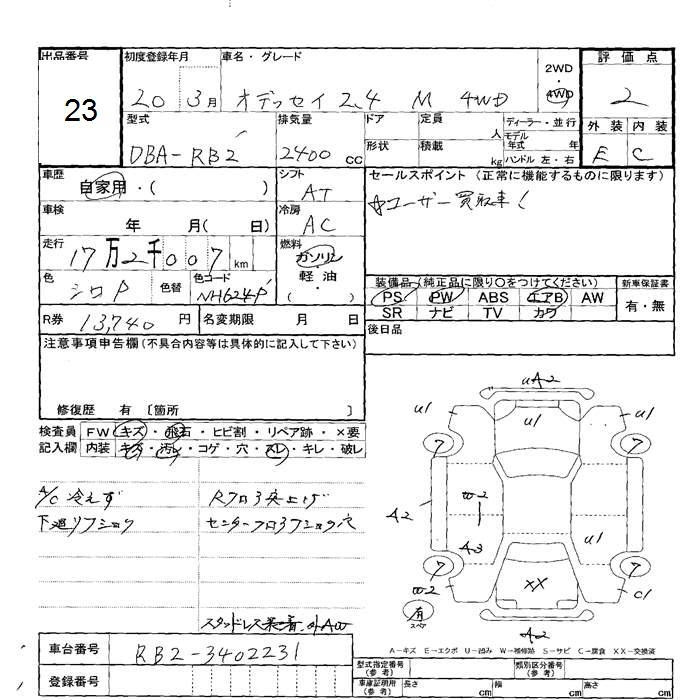 出品番号 初度登録年月 車名・グレード 2WD・4WD 評価点
23 20 3月 オデッセイ 2.4 M 4WD 2
型式 排気量 ドア 定員 人 ディーラー・並行 外装 内装
DBA-RB2 2400 cc 形状 積載 kg モデル年式 年 ハンドル 左・右 E C
車歴 シフト セールスポイント (正常に機能するものに限ります)
自家用・( ) AT ユーザー買取車!
車検 年 月( 日) 冷房 AC
走行 17万2千007km 燃料 ガソリン・軽油・( )
装備品 (純正品に限り○をつけてください) 新車保証書
色 シロP 色替 色コード NH624P PS PW ABS エアB AW 有・無
SR ナビ TV カワ
R券 13,740円 名変期限 月 日
後日品
注意事項申告欄(不具合内容等は具体的に記入して下さい)
修復歴 有 〔箇所 〕
検査員 FW キズ・飛石・ヒビ割・リペア跡・×要
記入欄 内装 キズ・汚レ・コゲ・穴・スレ・キレ・破レ
A/C 冷えず Rフロア突上げ
下廻リフショック
スタッドレス装着 ・外AW
UA2
U1 U1 U1
7 7
A2 W2
A3 U1
7 7
XX
W2 C1
有
スペア
A2
A-キズ E-エクボ U-凹み W-補修跡 S-サビ C-腐食 XX-交換済
車台番号 RB2-3402231
登録番号
型式指定番号(参考) 類別区分番号(参考)
車庫証明用(参考) 長さ cm 幅 cm 高さ cm